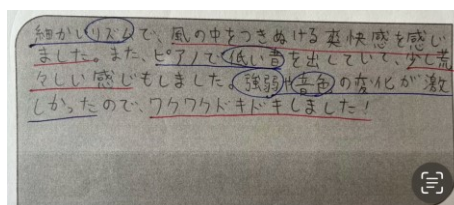 細かいリズムで、風の中をつきぬける爽快感を感じ
ました。また、ピアノで低い音を出していて、少し荒
々しい感じもしました。強弱や音色の変化が激
しかったので、ワクワクドキドキしました!